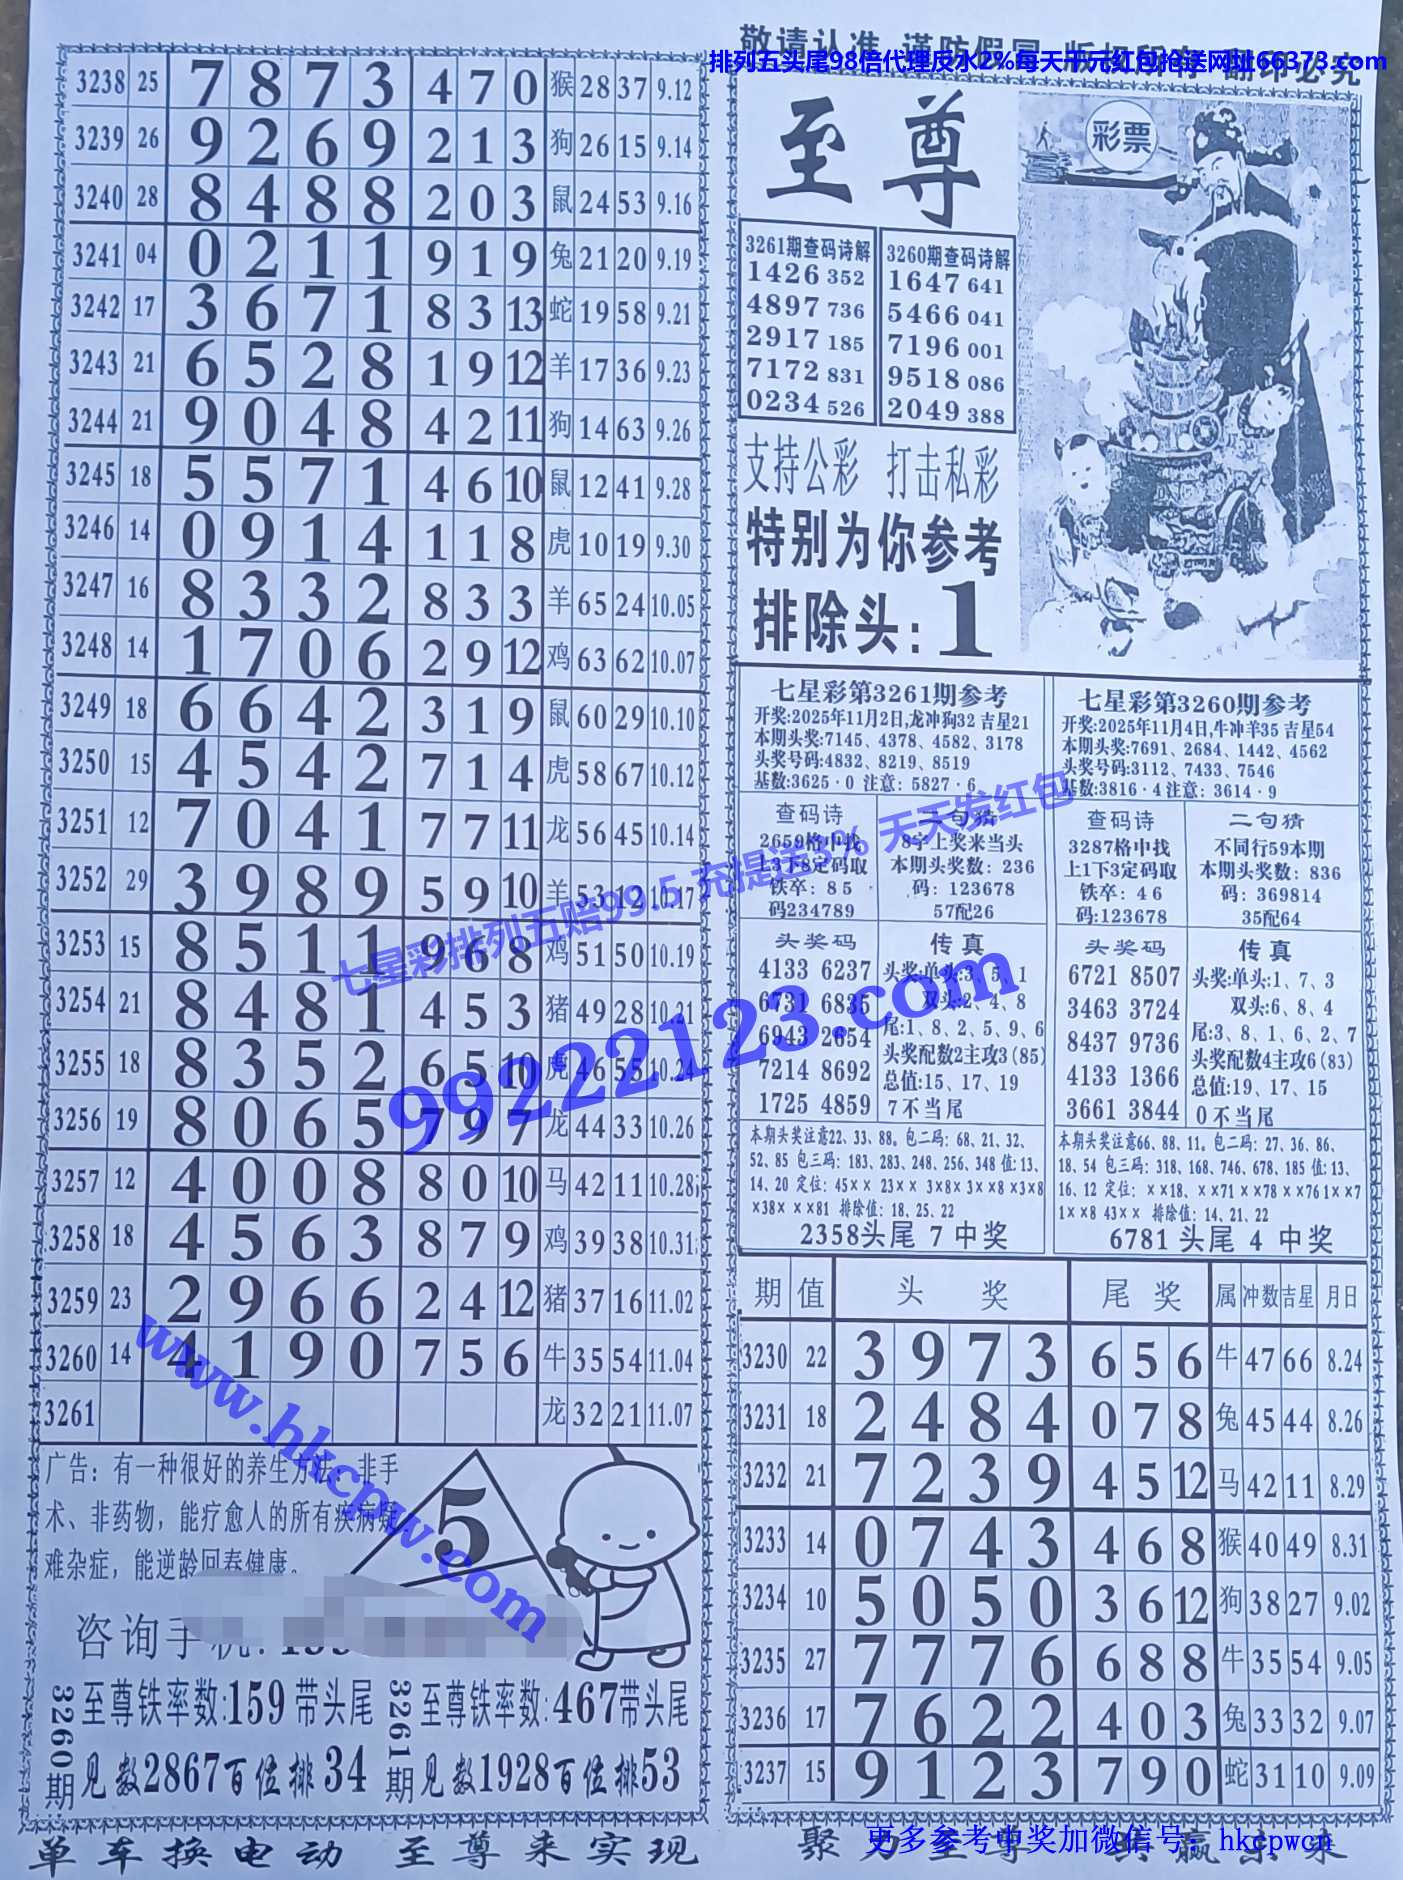 敬请认准 谨防假冒 版权所有 翻印必究
排列五头尾98倍代理反水2%每天千元红包抢送网址66373.com
3238 25 7 8 7 3 4 7 0 猴 28 37 9.12
3239 26 9 2 6 9 2 1 3 狗 26 15 9.14
3240 28 8 4 8 8 2 0 3 鼠 24 53 9.16
3241 04 0 2 1 1 9 1 9 兔 21 20 9.19
3242 17 3 6 7 1 8 3 13 蛇 19 58 9.21
3243 21 6 5 2 8 1 9 12 羊 17 36 9.23
3244 21 9 0 4 8 4 2 11 狗 14 63 9.26
3245 18 5 5 7 1 4 6 10 鼠 12 41 9.28
3246 14 0 9 1 4 1 1 8 虎 10 19 9.30
3247 16 8 3 3 2 8 3 3 羊 65 24 10.05
3248 14 1 7 0 6 2 9 12 鸡 63 62 10.07
3249 18 6 6 4 2 3 1 9 鼠 60 29 10.10
3250 15 4 5 4 2 7 1 4 虎 58 67 10.12
3251 12 7 0 4 1 7 7 11 龙 56 45 10.14
3252 29 3 9 8 9 5 9 10 羊 53 12 10.17
3253 15 8 5 1 1 9 6 8 鸡 51 50 10.19
3254 21 8 4 8 1 4 5 3 猪 49 28 10.21
3255 18 8 3 5 2 6 5 10 虎 46 55 10.24
3256 19 8 0 6 5 7 9 7 龙 44 33 10.26
3257 12 4 0 0 8 8 0 10 马 42 11 10.28
3258 18 4 5 6 3 8 7 9 鸡 39 38 10.31
3259 23 2 9 6 6 2 4 12 猪 37 16 11.02
3260 14 4 1 9 0 7 5 6 牛 35 54 11.04
3261 龙 32 21 11.07
广告：有一种很好的养生方法，非手
术、非药物，能疗愈人的所有疾病疑
难杂症，能逆龄回春健康。
咨询手机:
5
3260期
至尊铁率数:159 带头尾
见数2867百位排34
3261期
至尊铁率数:467带头尾
见数1928百位排53
单车换电动 至尊来实现
至尊
彩票
3261期查码诗解
1426 352
4897 736
2917 185
7172 831
0234 526
3260期查码诗解
1647 641
5466 041
7196 001
9518 086
2049 388
支持公彩 打击私彩
特别为你参考
排除头:1
七星彩第3261期参考
开奖:2025年11月2日,龙冲狗32 吉星21
本期头奖:7145、4378、4582、3178
头奖号码:4832、8219、8519
基数:3625·0 注意：5827·6
查码诗
2659格中找
上3下8定码取
铁卒：85
码234789
二句猜
8字上奖来当头
本期头奖数：236
码：123678
57配26
头奖码
4133 6237
6731 6835
6943 2654
7214 8692
1725 4859
传真
头奖:单头:3、5、1
双头:2、4、8
尾:1、8、2、5、9、6
头奖配数2主攻3(85)
总值:15、17、19
7不当尾
本期头奖注意22、33、88。包二码：68、21、32、
52、85 包三码：183、283、248、256、348 值:13、
14、20 定位：45×× 23×× 3×8× 3××8 ×3×8
×38× ××81 排除值：18、25、22
2358头尾 7 中奖
七星彩第3260期参考
开奖:2025年11月4日,牛冲羊35 吉星54
本期头奖:7691、2684、1442、4562
头奖号码:3112、7433、7546
基数:3816·4注意：3614·9
查码诗
3287格中找
上1下3定码取
铁卒：46
码:123678
二句猜
不同行59本期
本期头奖数：836
码：369814
35配64
头奖码
6721 8507
3463 3724
8437 9736
4133 1366
3661 3844
传真
头奖:单头:1、7、3
双头:6、8、4
尾:3、8、1、6、2、7
头奖配数4主攻6(83)
总值:19、17、15
0不当尾
本期头奖注意66、88、11。包二码：27、36、86、
18、54 包三码：318、168、746、678、185 值:13、
16、12 定位：××18、××71 ××78 ××76 1××7
1××8 43×× 排除值：14、21、22
6781 头尾 4 中奖
期 值 头奖 尾奖 属 冲数 吉星 月日
3230 22 3 9 7 3 6 5 6 牛 47 66 8.24
3231 18 2 4 8 4 0 7 8 兔 45 44 8.26
3232 21 7 2 3 9 4 5 12 马 42 11 8.29
3233 14 0 7 4 3 4 6 8 猴 40 49 8.31
3234 10 5 0 5 0 3 6 12 狗 38 27 9.02
3235 27 7 7 7 6 6 8 8 牛 35 54 9.05
3236 17 7 6 2 2 4 0 3 兔 33 32 9.07
3237 15 9 1 2 3 7 9 0 蛇 31 10 9.09
更多参考中奖加微信号：hkcpwcn
七星彩排列五赔99.5 充提送3% 天天发红包
99222123.com
www.hkcpw.com